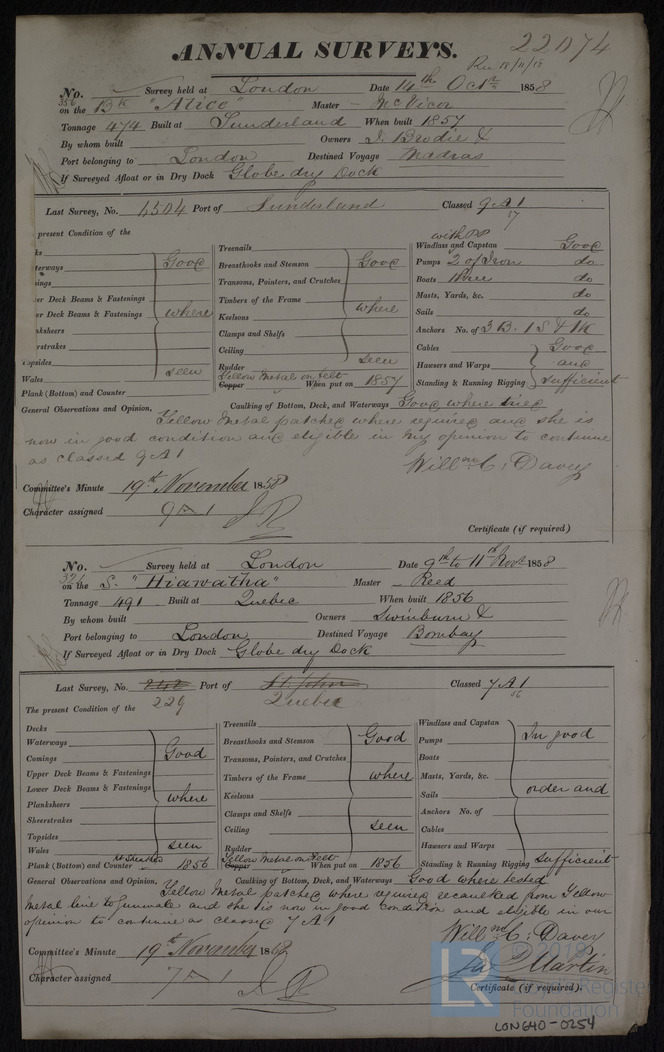 ANNUAL SURVEYS.
22074
Rec 18/11/58
No. 356 Survey held at London Date 14th Octr 1858
on the Bk "Alice" Master McVicar
Tonnage 474 Built at Sunderland When built 1857
By whom built Owners J. Brodie &
Port belonging to London Destined Voyage Madras
If Surveyed Afloat or in Dry Dock Globe dry Dock
Last Survey, No. 1504 Port of Sunderland Classed 9 A 1
57
present Condition of the
Waterways Good
er Deck Beams & Fastenings
er Deck Beams & Fastenings where
nksheers
erstrakes
Topsides
Wales seen
Plank (Bottom) and Counter
Treenails
Breasthooks and Stemson Good
Transoms, Pointers, and Crutches
Timbers of the Frame where
Keelsons
Clamps and Shelfs
Ceiling
Rudder seen
Yellow Metal on Felt
Copper When put on 1857
Windlass and Capstan Good
Pumps 2 of Iron do
Boats three do
Masts, Yards, &c. do
Sails do
Anchors No. of 3 B. 1 S & 1 K
Cables Good
Hawsers and Warps and
Standing & Running Rigging Sufficient
General Observations and Opinion, Caulking of Bottom, Deck, and Waterways Good where tried
Yellow Metal patched where required and she is
now in good condition and eligible in my opinion to continue
as classed 9 A 1
Willm C: Davey
Committee's Minute 19th November 1858
Character assigned 9 A 1
Certificate (if required)
No. 321 Survey held at London Date 9th to 11th Novr 1858
on the S. "Hiawatha" Master Reed
Tonnage 491 Built at Quebec When built 1856
By whom built Owners Swinburn &
Port belonging to London Destined Voyage Bombay
If Surveyed Afloat or in Dry Dock Globe dry Dock
Last Survey, No. 242 Port of St. John Classed 7 A 1
229 Quebec 56
The present Condition of the
Decks
Waterways
Comings Good
Upper Deck Beams & Fastenings
Lower Deck Beams & Fastenings
Planksheers where
Sheerstrakes
Topsides
Wales seen
Plank (Bottom) and Counter 1856
Treenails
Breasthooks and Stemson Good
Transoms, Pointers, and Crutches
Timbers of the Frame where
Keelsons
Clamps and Shelfs
Ceiling seen
Rudder
Yellow Metal on Felt
Copper When put on 1856
Windlass and Capstan
Pumps In good
Boats
Masts, Yards, &c.
Sails order and
Anchors No. of
Cables
Hawsers and Warps
Standing & Running Rigging Sufficient
General Observations and Opinion, Caulking of Bottom, Deck, and Waterways Good where tested
Yellow Metal patched where required recaulked from Yellow
Metal line to Gunwale and she is now in good condition and eligible in our
opinion to continue as classed 7 A 1
Willm C: Davey
Jas Martin
Committee's Minute 19th November 1858
Character assigned 7 A 1
Certificate (if required).
LR © 2019
Lloyd's Register
Foundation
LON640-0254